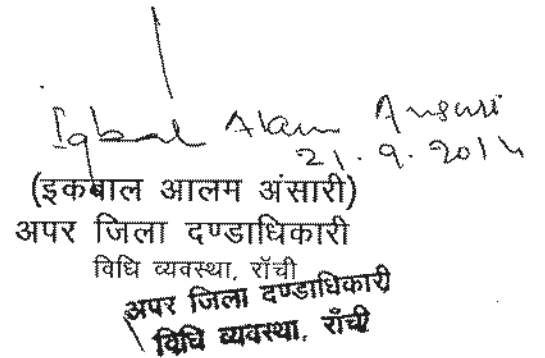 Iqbal Alam Ansari
21.9.2014
(इकबाल आलम अंसारी)
अपर जिला दण्डाधिकारी
विधि व्यवस्था, राँची
अपर जिला दण्डाधिकारी
विधि व्यवस्था, राँची